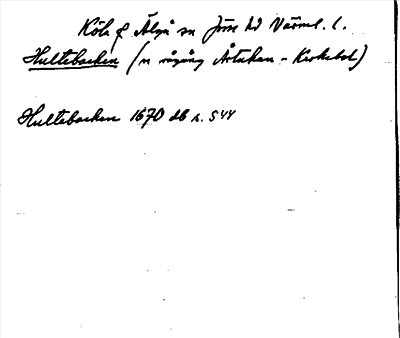 Köla f Älgå sn Jöss hd Värml. l.
Hultebacken (n rågång Årtakan - Kerkebol)
Hultebacken 1670 db h. S 44